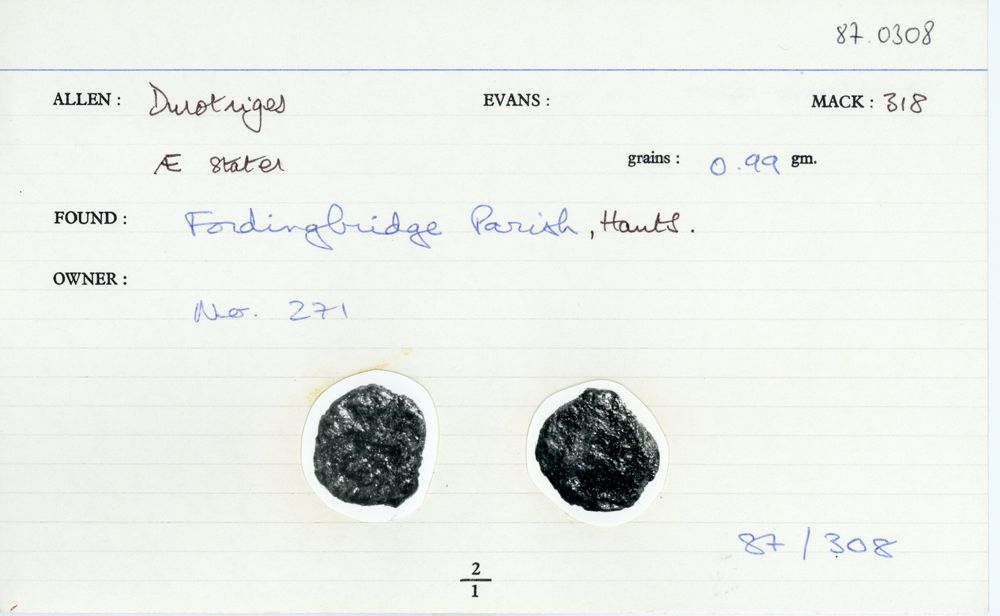 87.0308
ALLEN : Durotriges EVANS : MACK : 318
Æ stater grains : 0.99 gm.
FOUND : Fordingbridge Parish, Hants.
OWNER :
No. 271
87/308
2
1